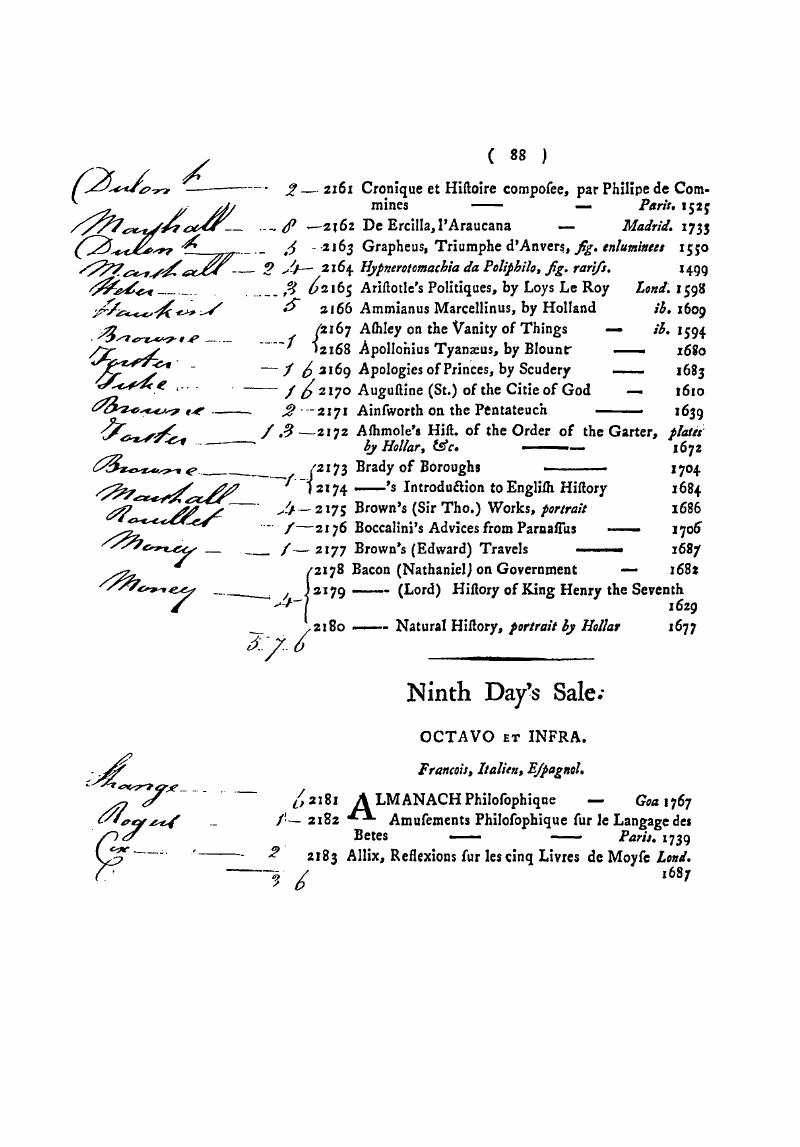 ( 88 )
Dulon t 2 — 2161 Cronique et Hiſtoire compoſee, par Philipe de Com-
mines — — Paris. 1525
Marshall — 8 — 2162 De Ercilla, l'Araucana — Madrid. 1733
Dulon t 3 - 2163 Grapheus, Triumphe d'Anvers, fig. enluminees 1550
Marshall — 2 4 — 2164 Hypnerotomachia da Poliphilo, fig. rariſs. 1499
Heber 3 6 2165 Ariſtotle's Politiques, by Loys Le Roy Lond. 1598
5 2166 Ammianus Marcellinus, by Holland ib. 1609
Browne — 1 { 2167 Aſhley on the Vanity of Things — ib. 1594
2168 Apollonius Tyanæus, by Blount — 1680
Forster - — 1 6 2169 Apologies of Princes, by Scudery — 1683
— 1 6 2170 Auguſtine (St.) of the Citie of God — 1610
Browne — 2 - 2171 Ainſworth on the Pentateuch — 1639
Forster — 1 3 — 2172 Aſhmole's Hiſt. of the Order of the Garter, plates
by Hollar, &c. — 1672
Browne — 1 - { 2173 Brady of Boroughs — 1704
Marshall 2174 —'s Introduction to Engliſh Hiſtory 1684
4 — 2175 Brown's (Sir Tho.) Works, portrait 1686
1 — 2176 Boccalini's Advices from Parnaſſus — 1706
Money — — 1 — 2177 Brown's (Edward) Travels — 1687
{ 2178 Bacon (Nathaniel) on Government — 1682
Money — 4 - 2179 — (Lord) Hiſtory of King Henry the Seventh
1629
2180 — Natural Hiſtory, portrait by Hollar 1677
5. 7. 6
Ninth Day's Sale.
OCTAVO ET INFRA.
Francois, Italien, Eſpagnol.
Strange - 6 2181 ALMANACH Philoſophique — Goa 1767
1 — 2182 Amuſements Philoſophique ſur le Langage des
Betes — — Paris. 1739
Cox — — 2 2183 Allix, Reflexions ſur les cinq Livres de Moyſe Lond.
1687
3 6